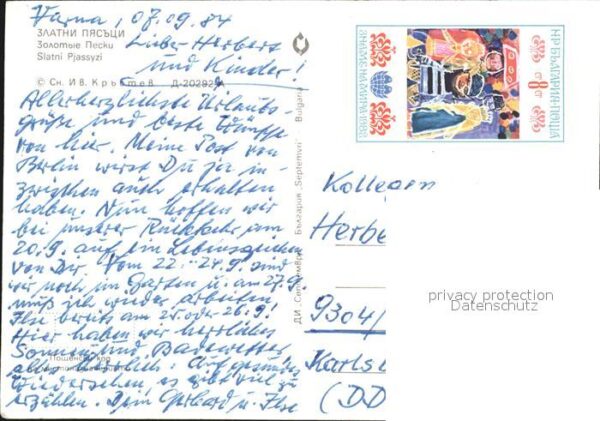 Varna, 07.09.84
ЗЛАТНИ ПЯСЪЦИ
Золотые Пески
Slatni Pjassyzi
Lieber Herbert
und Kinder!
© Сн. Ив. Кръстев Д-20292-А
Allerherzlichste Urlaubs-
grüße und beste Wünsche
von hier. Meine Post von
Berlin wirst Du ja in-
zwischen auch erhalten
haben. Nun hoffen wir
bei unserer Rückkehr am
20.9. auf ein Lebenszeichen
von Dir. Vom 22.-24.9. sind
wir noch im Garten u. am 27.9.
muß ich wieder arbeiten,
Ilse bereits am 25. oder 26.9!
Hier haben wir herrliches
Sonnen- und Badewetter
alles
Wiedersehen, es gibt viel zu
erzählen. Dein Gerhard u. Ilse
Пощенски код
ДИ „Септември" България „Septemvri" Bulgaria
НР БЪЛГАРИЯ·ПОЩА
8 СТ
ЗНАМЕ НА МИРА 1982
Kollegen
Herbe
9304/
Karls
(DD
privacy protection
Datenschutz